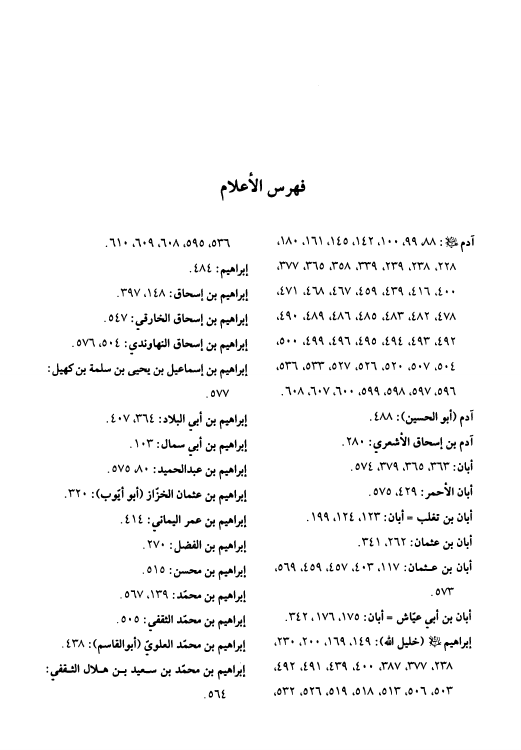 فهرس الأعلام
آدم ﷺ: ٨٨، ٩٩، ١٠٠، ١٤٢، ١٤٥، ١٦١، ١٨٠،
٢٢٨، ٢٣٨، ٢٣٩، ٣٣٩، ٣٥٨، ٣٦٥، ٣٧٧،
٤٠٠، ٤١٦، ٤٣٩، ٤٥٩، ٤٦٧، ٤٦٨، ٤٧١،
٤٧٨، ٤٨٢، ٤٨٣، ٤٨٥، ٤٨٦، ٤٨٩، ٤٩٠،
٤٩٢، ٤٩٣، ٤٩٤، ٤٩٥، ٤٩٦، ٤٩٩، ٥٠٠،
٥٠٤، ٥٠٧، ٥٢٠، ٥٢٦، ٥٢٧، ٥٣٣، ٥٣٦،
٥٩٦، ٥٩٧، ٥٩٨، ٥٩٩، ٦٠٠، ٦٠٧، ٦٠٨.
آدم (أبو الحسين): ٤٨٨.
آدم بن إسحاق الأشعري: ٢٨٠.
أبان: ٣٦٣، ٣٦٥، ٣٧٩، ٥٧٤.
أبان الأحمر: ٤٢٩، ٥٧٥.
أبان بن تغلب = أبان: ١٢٣، ١٢٤، ١٩٩.
أبان بن عثمان: ٢٦٢، ٣٤١.
أبان بن عـثمان: ١١٧، ٤٠٣، ٤٥٧، ٤٥٩، ٥٦٩،
٥٧٣.
أبان بن أبي عيّاش = أبان: ١٧٥، ١٧٦، ٣٤٢.
إبراهيم ﷺ (خليل الله): ١٤٩، ١٦٩، ٢٠٠، ٢٣٠،
٢٣٨، ٣٧٧، ٣٨٧، ٤٠٠، ٤٣٩، ٤٩١، ٤٩٢،
٥٠٣، ٥٠٦، ٥١٣، ٥١٨، ٥١٩، ٥٢٦، ٥٣٢،
٥٣٦، ٥٩٥، ٦٠٨، ٦٠٩، ٦١٠.
إبراهيم: ٤٨٤.
إبراهيم بن إسحاق: ١٤٨، ٣٩٧.
إبراهيم بن إسحاق الخارقي: ٥٤٧.
إبراهيم بن إسحاق النهاوندي: ٥٠٤، ٥٧٦.
إبراهيم بن إسماعيل بن يحيى بن سلمة بن كهيل:
٥٧٧.
إبراهيم بن أبي البلاد: ٣٦٤، ٤٠٧.
إبراهيم بن أبي سمال: ١٠٣.
إبراهيم بن عبدالحميد: ٨٠، ٥٧٥.
إبراهيم بن عثمان الخزّاز (أبو أيّوب): ٣٢٠.
إبراهيم بن عمر اليماني: ٤١٤.
إبراهيم بن الفضل: ٢٧٠.
إبراهيم بن محسن: ٥١٥.
إبراهيم بن محمّد: ١٣٩، ٥٦٧.
إبراهيم بن محمّد الثقفي: ٥٠٥.
إبراهيم بن محمّد العلويّ (أبوالقاسم): ٤٣٨.
إبراهيم بن محمّد بن سعيد بـن هـلال الثـقفي:
٥٦٤.